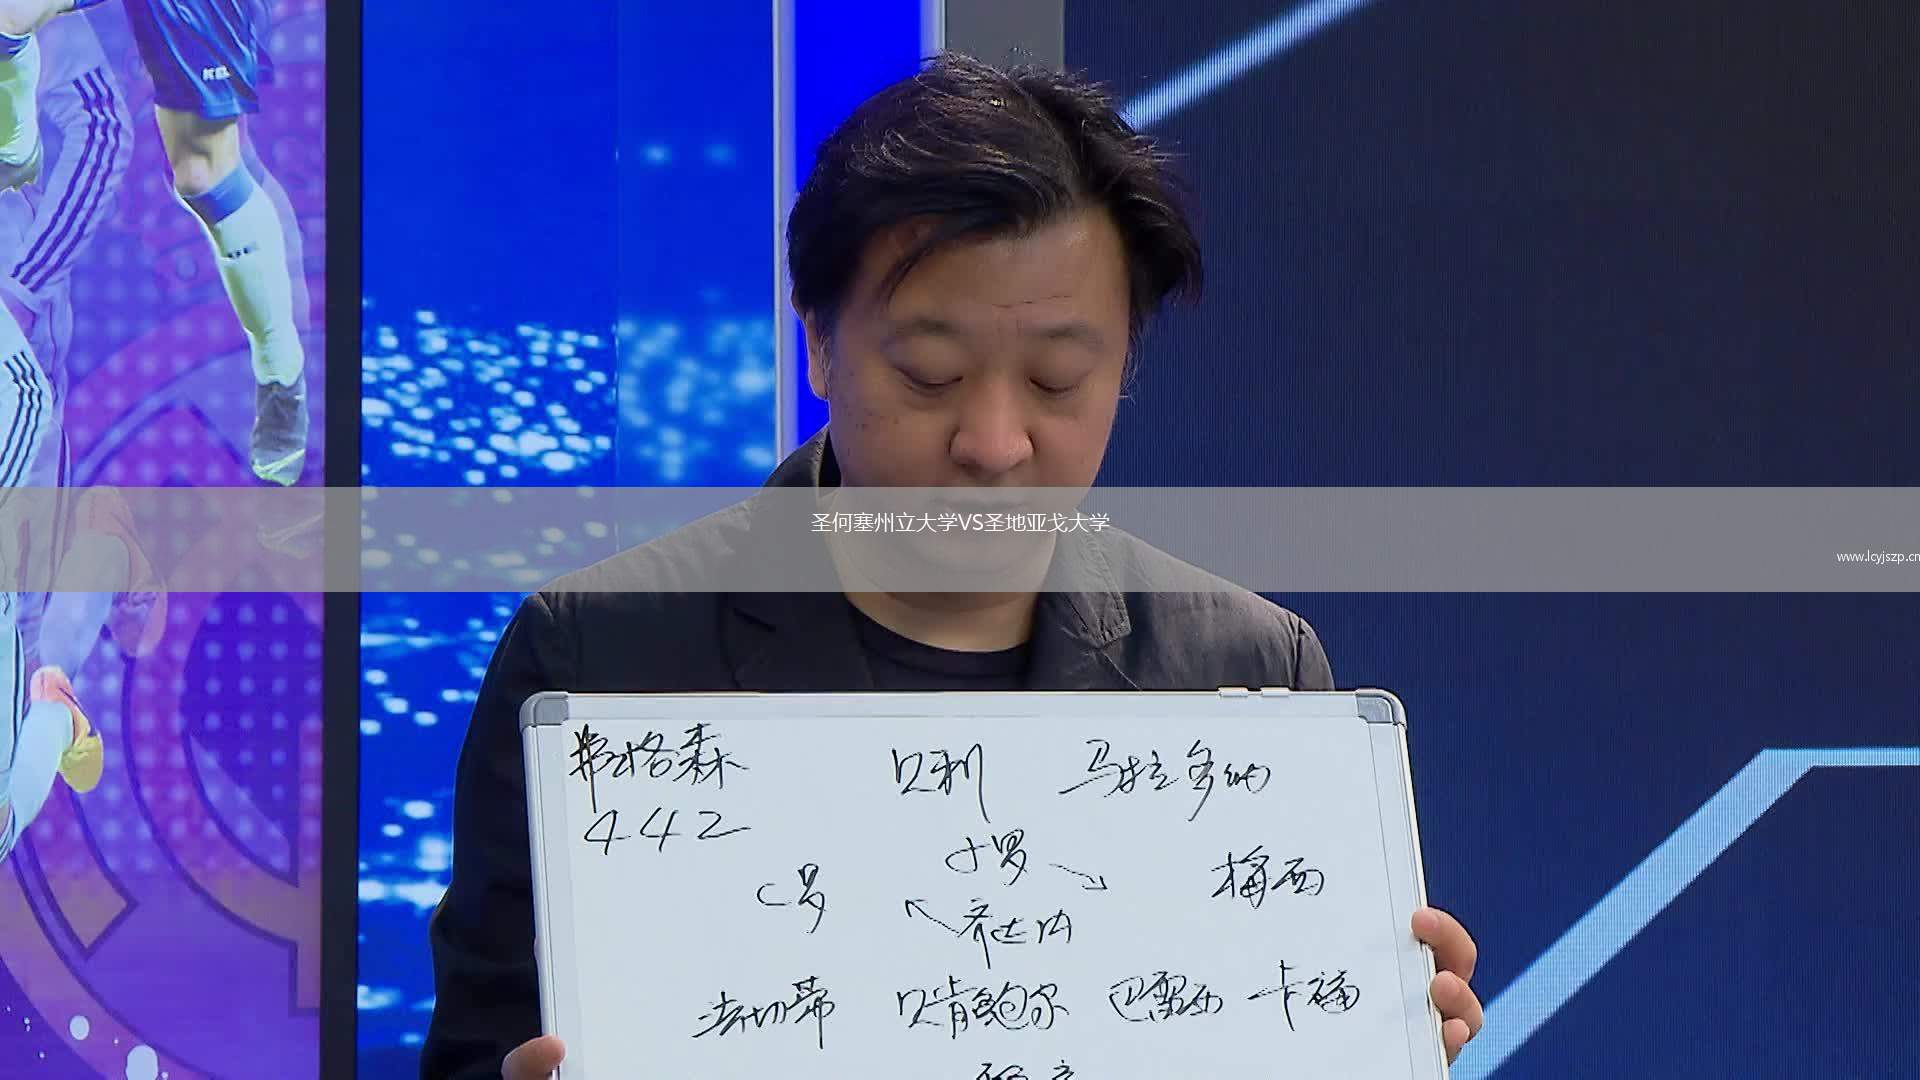 KEL
圣何塞州立大学VS圣地亚戈大学
www.lcyjszp.cn
弗格森 贝利 马拉多纳
442
小罗
C罗 梅西
齐达内
法切蒂 贝肯鲍尔 巴雷西 卡福